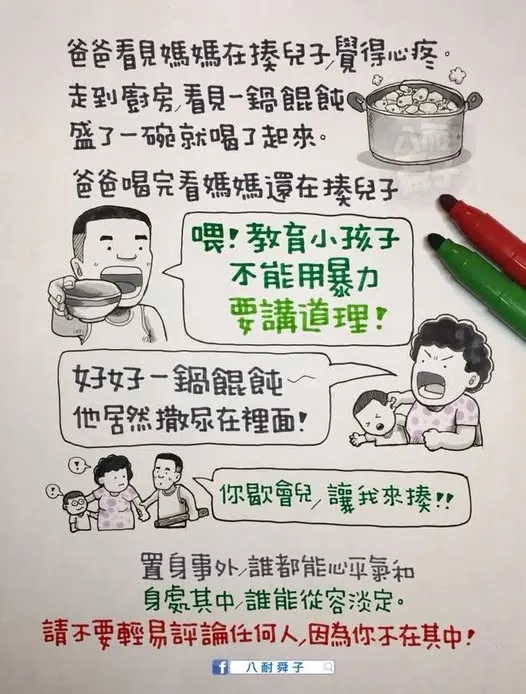 爸爸看見媽媽在揍兒子,覺得心疼。
走到廚房,看見一鍋餛飩
盛了一碗就喝了起來。
爸爸喝完看媽媽還在揍兒子
喂!教育小孩子
不能用暴力
要講道理!
好好一鍋餛飩~
他居然撒尿在裡面!
你歇會兒,讓我來揍!!
置身事外,誰都能心平氣和
身處其中,誰能從容淡定。
請不要輕易評論任何人,因為你不在其中!
f 八耐舜子